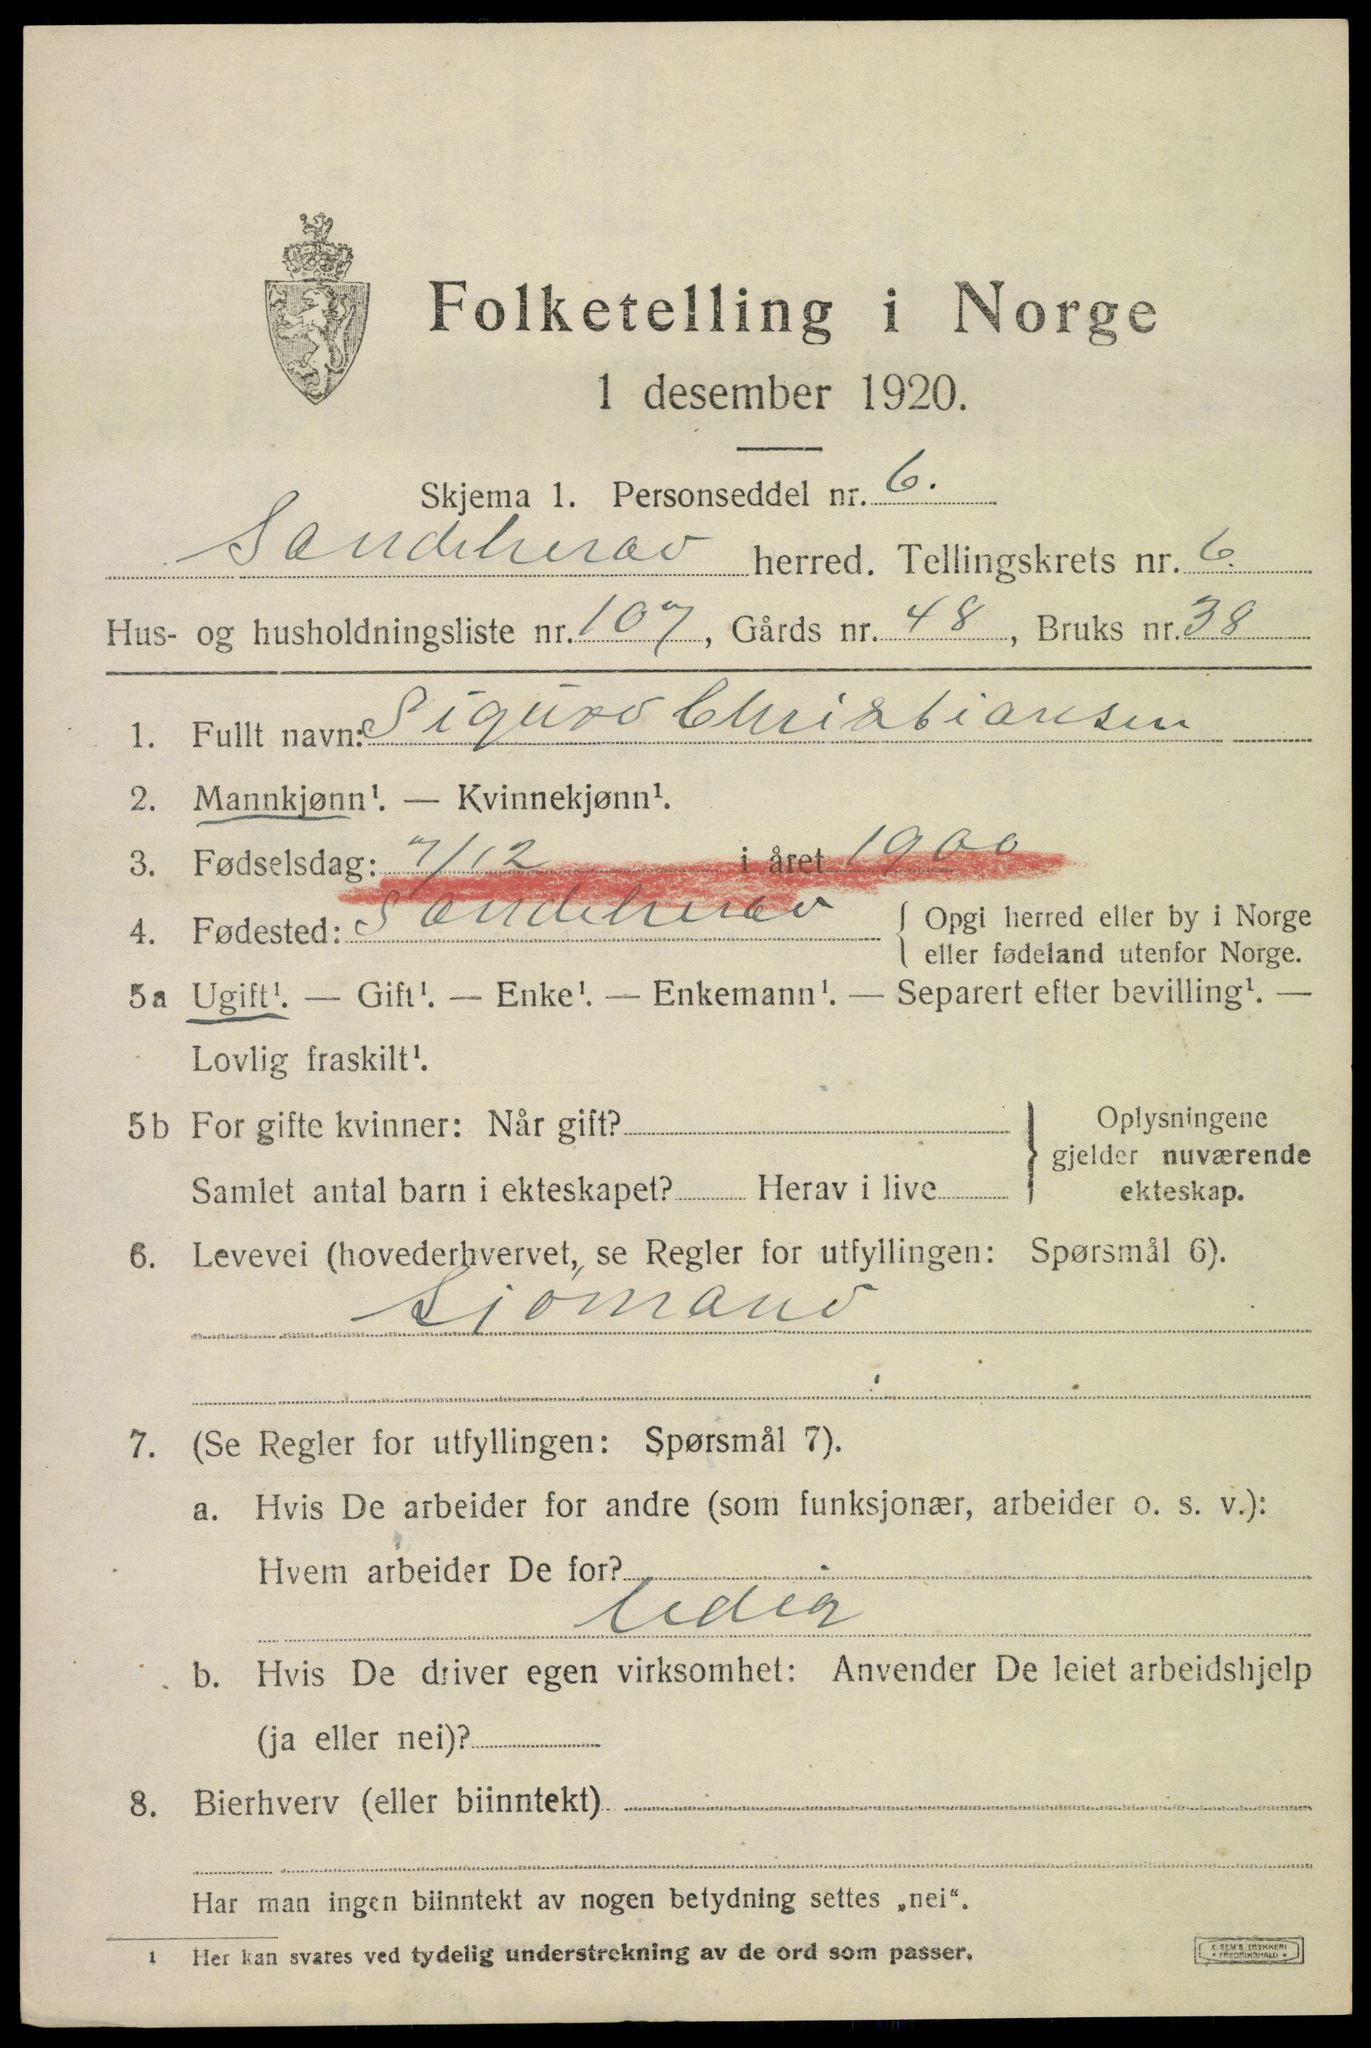 Folketelling i Norge
1 desember 1920.
Skjema 1. Personseddel nr. 6.
Sandeherad herred. Tellingskrets nr. 6.
Hus- og husholdningsliste nr. 107, Gårds nr. 48, Bruks nr. 38
1. Fullt navn: Sigurd Christiansen
2. Mannkjønn¹. — Kvinnekjønn¹.
3. Fødselsdag: 7/12 i året 1900
4. Fødested: Sandeherad { Opgi herred eller by i Norge
eller fødeland utenfor Norge.
5a Ugift¹. — Gift¹. — Enke¹. — Enkemann¹. — Separert efter bevilling¹. —
Lovlig fraskilt¹.
5b For gifte kvinner: Når gift?
Samlet antal barn i ekteskapet? Herav i live
} Oplysningene
gjelder nuværende
ekteskap.
6. Levevei (hovederhvervet, se Regler for utfyllingen: Spørsmål 6).
Sjømand
7. (Se Regler for utfyllingen: Spørsmål 7).
a. Hvis De arbeider for andre (som funksjonær, arbeider o. s. v.):
Hvem arbeider De for?
ledig
b. Hvis De driver egen virksomhet: Anvender De leiet arbeidshjelp
(ja eller nei)?
8. Bierhverv (eller biinntekt)
Har man ingen biinntekt av nogen betydning settes „nei“.
1 Her kan svares ved tydelig understrekning av de ord som passer.
E. SEM'S TRYKKERI
FREDRIKSHALD